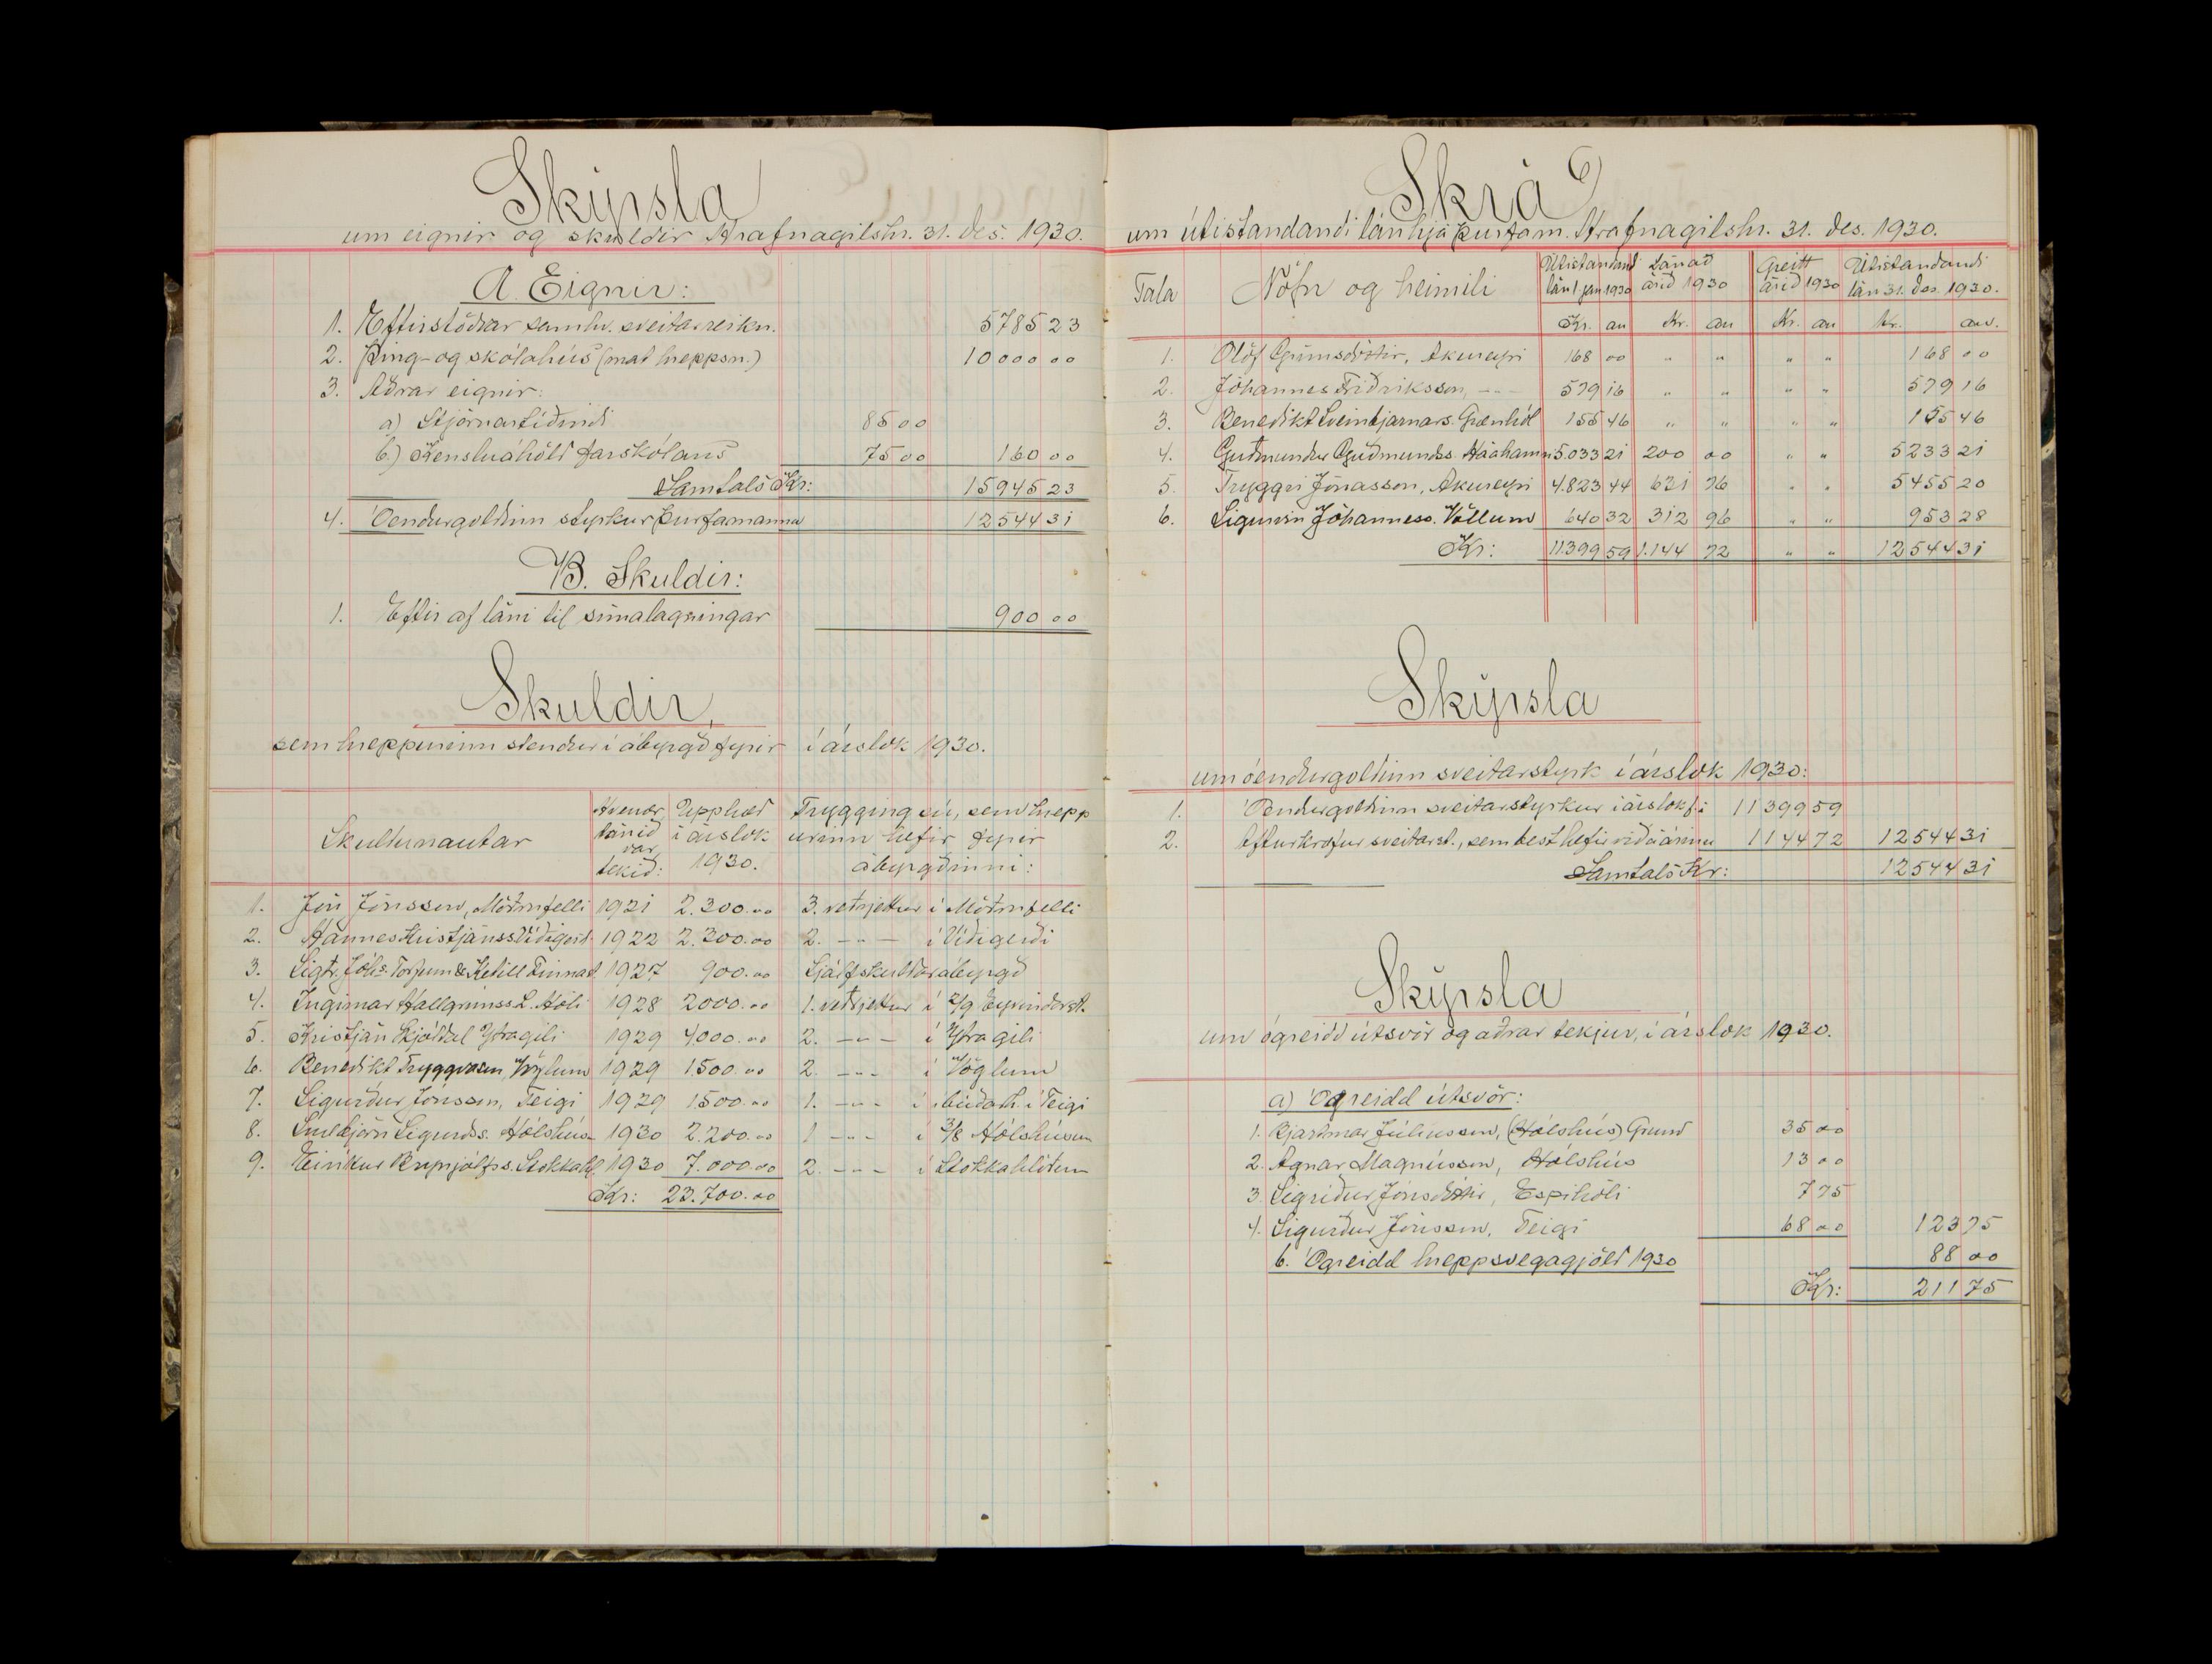 Skýrsla
um eignir og skuldir Hrafnagilshr. 31. des. 1930.
A. Eignir:
1. Eftirstöðvar samkv. sveitarreikn. 5785 23
2. Þing- og skólahús (mat hreppsn.) 10000 00
3. Aðrar eignir:
a) Stjórnartíðindi 85 00
b.) Kensluáhöld farskólans 75 00 160 00
Samtals Kr: 15945 23
4. Óendurgoldinn styrkur þurfamanna 12544 31
B. Skuldir:
1. Eftir af láni til símalagningar 900 00
Skuldir,
sem hreppurinn stendur í ábyrgð fyrir í árslok 1930.
Skuldunautar Hvenær lánið var tekið: Upphæð í árslok 1930. Trygging sú, sem hreppurinn hefir fyrir ábyrgðinni:
1. Jón Jónsson, Möðrufelli 1921 2.300.00 3. veðrjettur í Möðrufelli
2. Hannes Kristjánss Víðigerð. 1922 2.300.00 2. -"- í Víðigerði
3. Sigtr. Jóhs. Torfum & Ketill Finnast. 1927 900.00 Sjálfskuldarábyrgð
4. Ingimar Hallgrímss L. Hóli 1928 2000.00 1. veðrjettur í 2/9 Eyvindarst.
5. Kristján Skjóldal Ytragili 1929 4000.00 2. -"- í Ytragili
6. Benedikt Tryggvason, Vöglum 1929 1.500.00 2. -"- í Vöglum
7. Sigurður Jónsson, Teigi 1929 1500.00 1. -"- í íbúðarh. í Teigi
8. Snæbjörn Sigurðss. Hólshús. 1930 2.200.00 1 -"- í 3/8 Hólshúsum
9. Eiríkur Brynjólfss. Stokkahl. 1930 7.000.00 2. -"- í Stokkahlöðum
Kr: 23.700.00
Skrá
um útistandandi lán hjá þurfam. Hrafnagilshr. 31. des. 1930.
Tala Nöfn og heimili Útistandand lán 1 jan 1930 Lánað árið 1930 Greitt árið 1930 Útistandandi lán 31. des. 1930.
Kr. au Kr. au Kr. au Kr. au.
1. Ólöf Grímsdóttir, Akureyri 168 00 " " " " 168 00
2. Jóhannes Friðriksson, -"- 579 16 " " " " 579 16
3. Benedikt Sveinbjarnars. Grænhól 155 46 " " " " 155 46
4. Guðmundur Guðmundss. Háahamri 5.033 21 200 00 " " 5233 21
5. Tryggvi Jónasson, Akureyri 4.823 44 631 76 " " 5455 20
6. Sigurvin Jóhanness. Völlum 640 32 312 96 " " 953 28
Kr: 11399 59 1.144 72 " " 12544 31
Skýrsla
um óendurgoldinn sveitarstyrk í árslok 1930:
1. Óendurgoldinn sveitarstyrkur í árslok f.á 11399 59
2. Afturkræfur sveitarst., sem bæst hefir við á árinu 1144 72 12544 31
Samtals Kr: 12544 31
Skýrsla
um ógreidd útsvör og aðrar tekjur, í árslok 1930.
a) Ógreidd útsvör:
1. Bjartmar Júlíusson, (Hólshús) Grund 35 00
2. Agnar Magnússon, Hólshús 13 00
3. Sigríður Jónsdóttir, Espihóli 7 75
4. Sigurður Jónsson, Teigi 68 00 123 75
b. Ógreidd hreppsvegagjöld 1930 88 00
Kr: 211 75